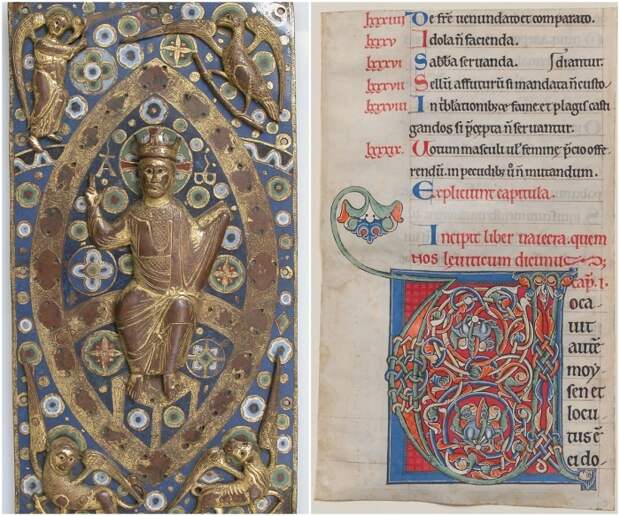 A B
lxxxiiii De fr̄e uenundato et comparato.
lxxxv Idola n̄ facienda.
lxxxvi Sabba seruanda. diantur.
lxxxvii affuturū si mandata n̄ custo
lxxxviii In fame et plagis casti
gandos si p̄cepta n̄ seruantur.
Uotum masculi ul' femine p̄cio offe
rendū. in pecudibꝫ ū n̄ mutandum.
Expliciunt capitula.
Incipit liber uaiecra. quem
nos leuiticum
cap. i.
Voca
uit
autē
moy
sen et
locu
tus ē
ei do